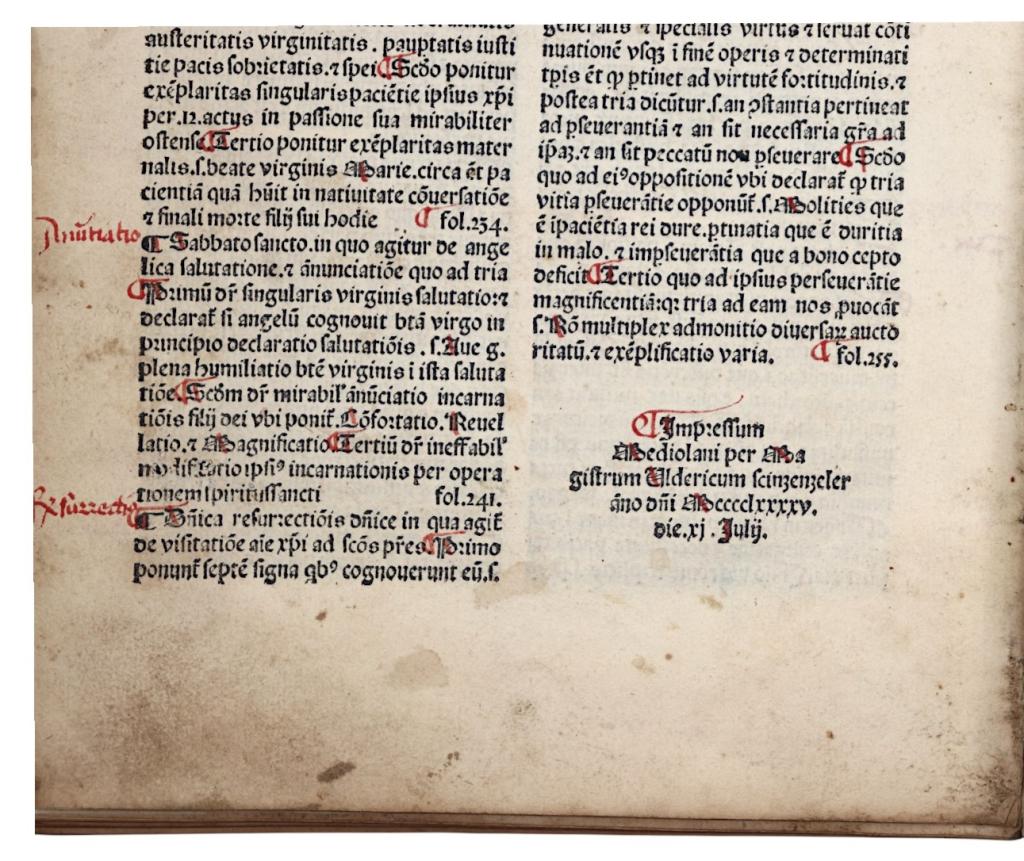 austeritatis virginitatis . pauꝑtatis iusti
tie pacis sobrietatis.⁊ spei ¶ Scd̄o ponitur
exēplaritas singularis paciētie ipsius xp̄i
per.12.actus in passione sua mirabiliter
ostense ¶ Tertio ponitur exēplaritas mater
nalis.s.beate virginis Marie.circa ēt pa
cientiā quā hūit in natiuitate cōuersatiōe
⁊ finali morte filij sui hodie ¶ fol.234.
Anūtiatio
¶ Sabbato sancto.in quo agitur de ange
lica salutatione.⁊ ānunciatiōe quo ad tria
¶ Primū dr̄ singularis virginis salutatio:⁊
declarat̄ si angelū cognouit btā virgo in
principio declaratio salutatiōis . s.Aue g.
plena humiliatio btē virginis i ista saluta
tiōe ¶ Scd̄m dr̄ mirabil' ānūciatio incarna
tiōis filij dei vbi ponit̄.Cōfortatio.Reuel
latio.⁊ Magnificatio ¶ Tertiū dr̄ ineffabil'
ipsiꝰ incarnationis per opera
tionem spiritussancti fol.241.
Resurrectio
¶ Dn̄ica resurrectiōis dn̄ice in qua agit̄
de visitatiōe aīe xp̄i ad scōs pr̄es ¶ Primo
ponunt̄ septē signa qbꝰ cognouerunt eū.s.
generalis ⁊ specialis virtus ⁊ seruat cōti
nuationē vsqꝫ ī finē operis ⁊ determinati
tꝑis ēt ꝙ ꝑtinet ad virtutē fortitudinis.⁊
postea tria dicūtur.s.an ꝯstantia pertineat
ad ꝑseuerantiā ⁊ an sit necessaria gr̄a ad
ip̄aꝫ.⁊ an sit peccatū non ꝑseuerare ¶ Scd̄o
quo ad eiꝰ oppositionē vbi declarat̄ ꝙ tria
vitia ꝑseuerātie opponūt̄.s.Molities que
ē ipaciētia rei dure.ꝑtinatia que ē duritia
in malo. ⁊ impseuerātia que a bono cepto
deficit ¶ Tertio quo ad ipsius perseuerātie
magnificentiā:qꝛ tria ad eam nos ꝓuocāt
s.Rō multiplex admonitio diuersaꝝ aucto
ritatū.⁊ exēplificatio varia. ¶ fol.255.
¶ Impressum
Mediolani per Ma
gistrum Uldericum scinzenzeler
āno dn̄i Mcccclxxxxv.
die.xj . Julij.